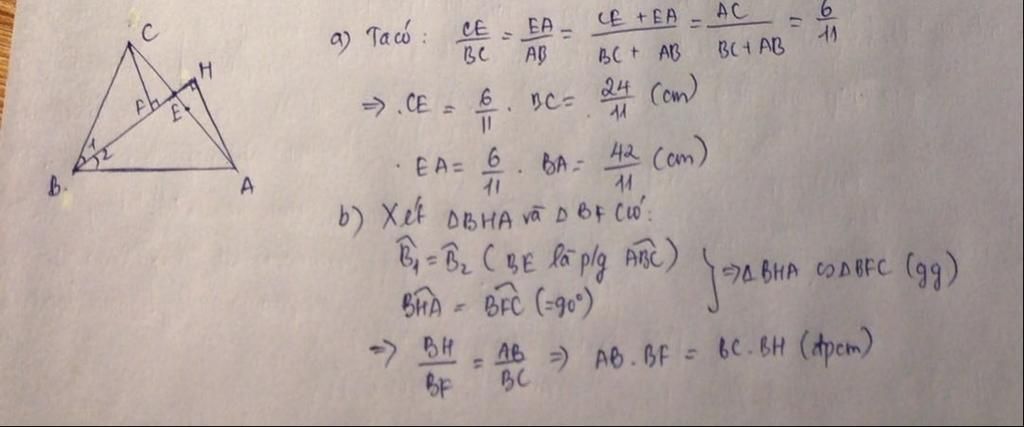 C
H
F
E
1
2
B
A
a) Ta có: CE/BC = EA/AB = (CE + EA)/(BC + AB) = AC/(BC + AB) = 6/11
=> .CE = 6/11 . BC = 24/11 (cm)
. EA = 6/11 . BA = 42/11 (cm)
b) Xét ΔBHA và ΔBFC có:
B̂₁ = B̂₂ (BE là p/g ABC^)
BHA^ = BFC^ (=90°)
} => ΔBHA ∽ ΔBFC (gg)
=> BH/BF = AB/BC => AB.BF = BC.BH (đpcm)